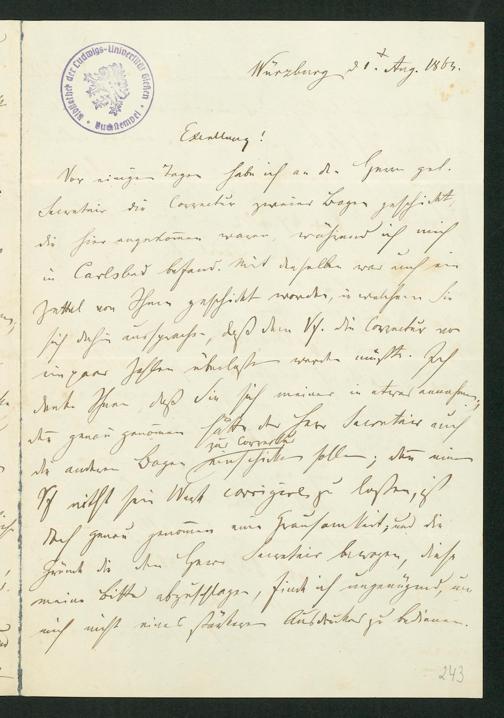 Bibliothek der Ludwigs-Universität Gießen
Buchstempel
Würzburg 21t Aug. 1863.
Excellenz!
Vor einigen Tagen habe ich an den Herrn
Secretair die Correctur zweier Bogen geschickt,
die hier angekommen waren, während ich mich
in Carlsbad befand. Mit denselben war auch ein
Zettel von Ihnen geschickt worden, in welchem Sie
sich dahin aussprachen, daß dem Vf. die Correctur von
ein paar Zahlen überlassen werden müßte. Ich
danke Ihnen daß Sie sich meiner in etwas annahmen,
denn genau genommen hätte der Herr Secretair auch
die anderen Bogen zur Correctur einschicken sollen; denn einen
Vf nicht sein Werk corrigiren zu lassen, ist
doch genau genommen eine Grausamkeit; und die
Gründe die den Herrn Secretair bewogen, diese
meine Bitte abzuschlagen, finde ich ungenügend, um
mich nicht eines stärkeren Ausdruckes zu bedienen.
243